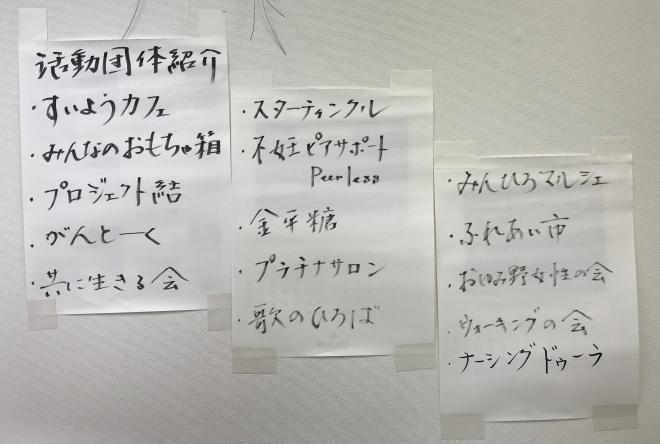 活動団体紹介
・すいようカフェ
・みんなのおもちゃ箱
・プロジェクト結
・がんとーく
・共に生きる会
・スターティンクル
・不妊ピアサポート
Peerless
・金平糖
・プラチナサロン
・歌のひろば
・みんひろマルシェ
・ふれあい市
・おゆみ野女性の会
・ウォーキングの会
・ナーシングドゥーラ